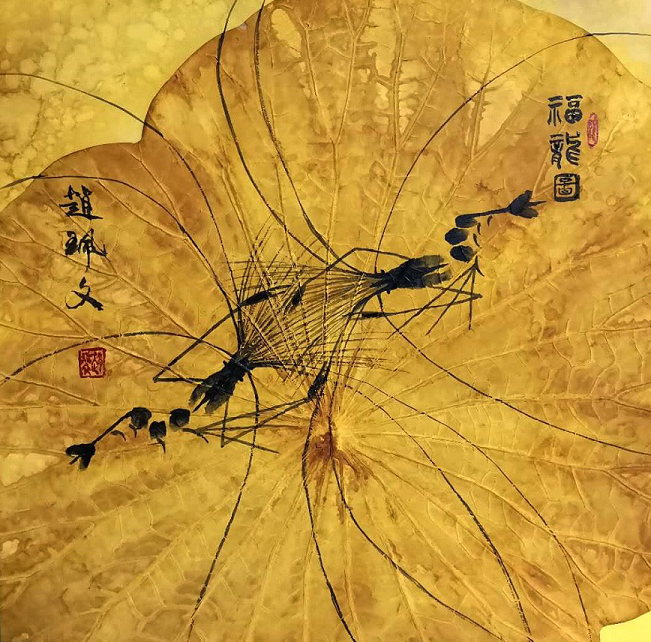 福龍圖
趙珮文